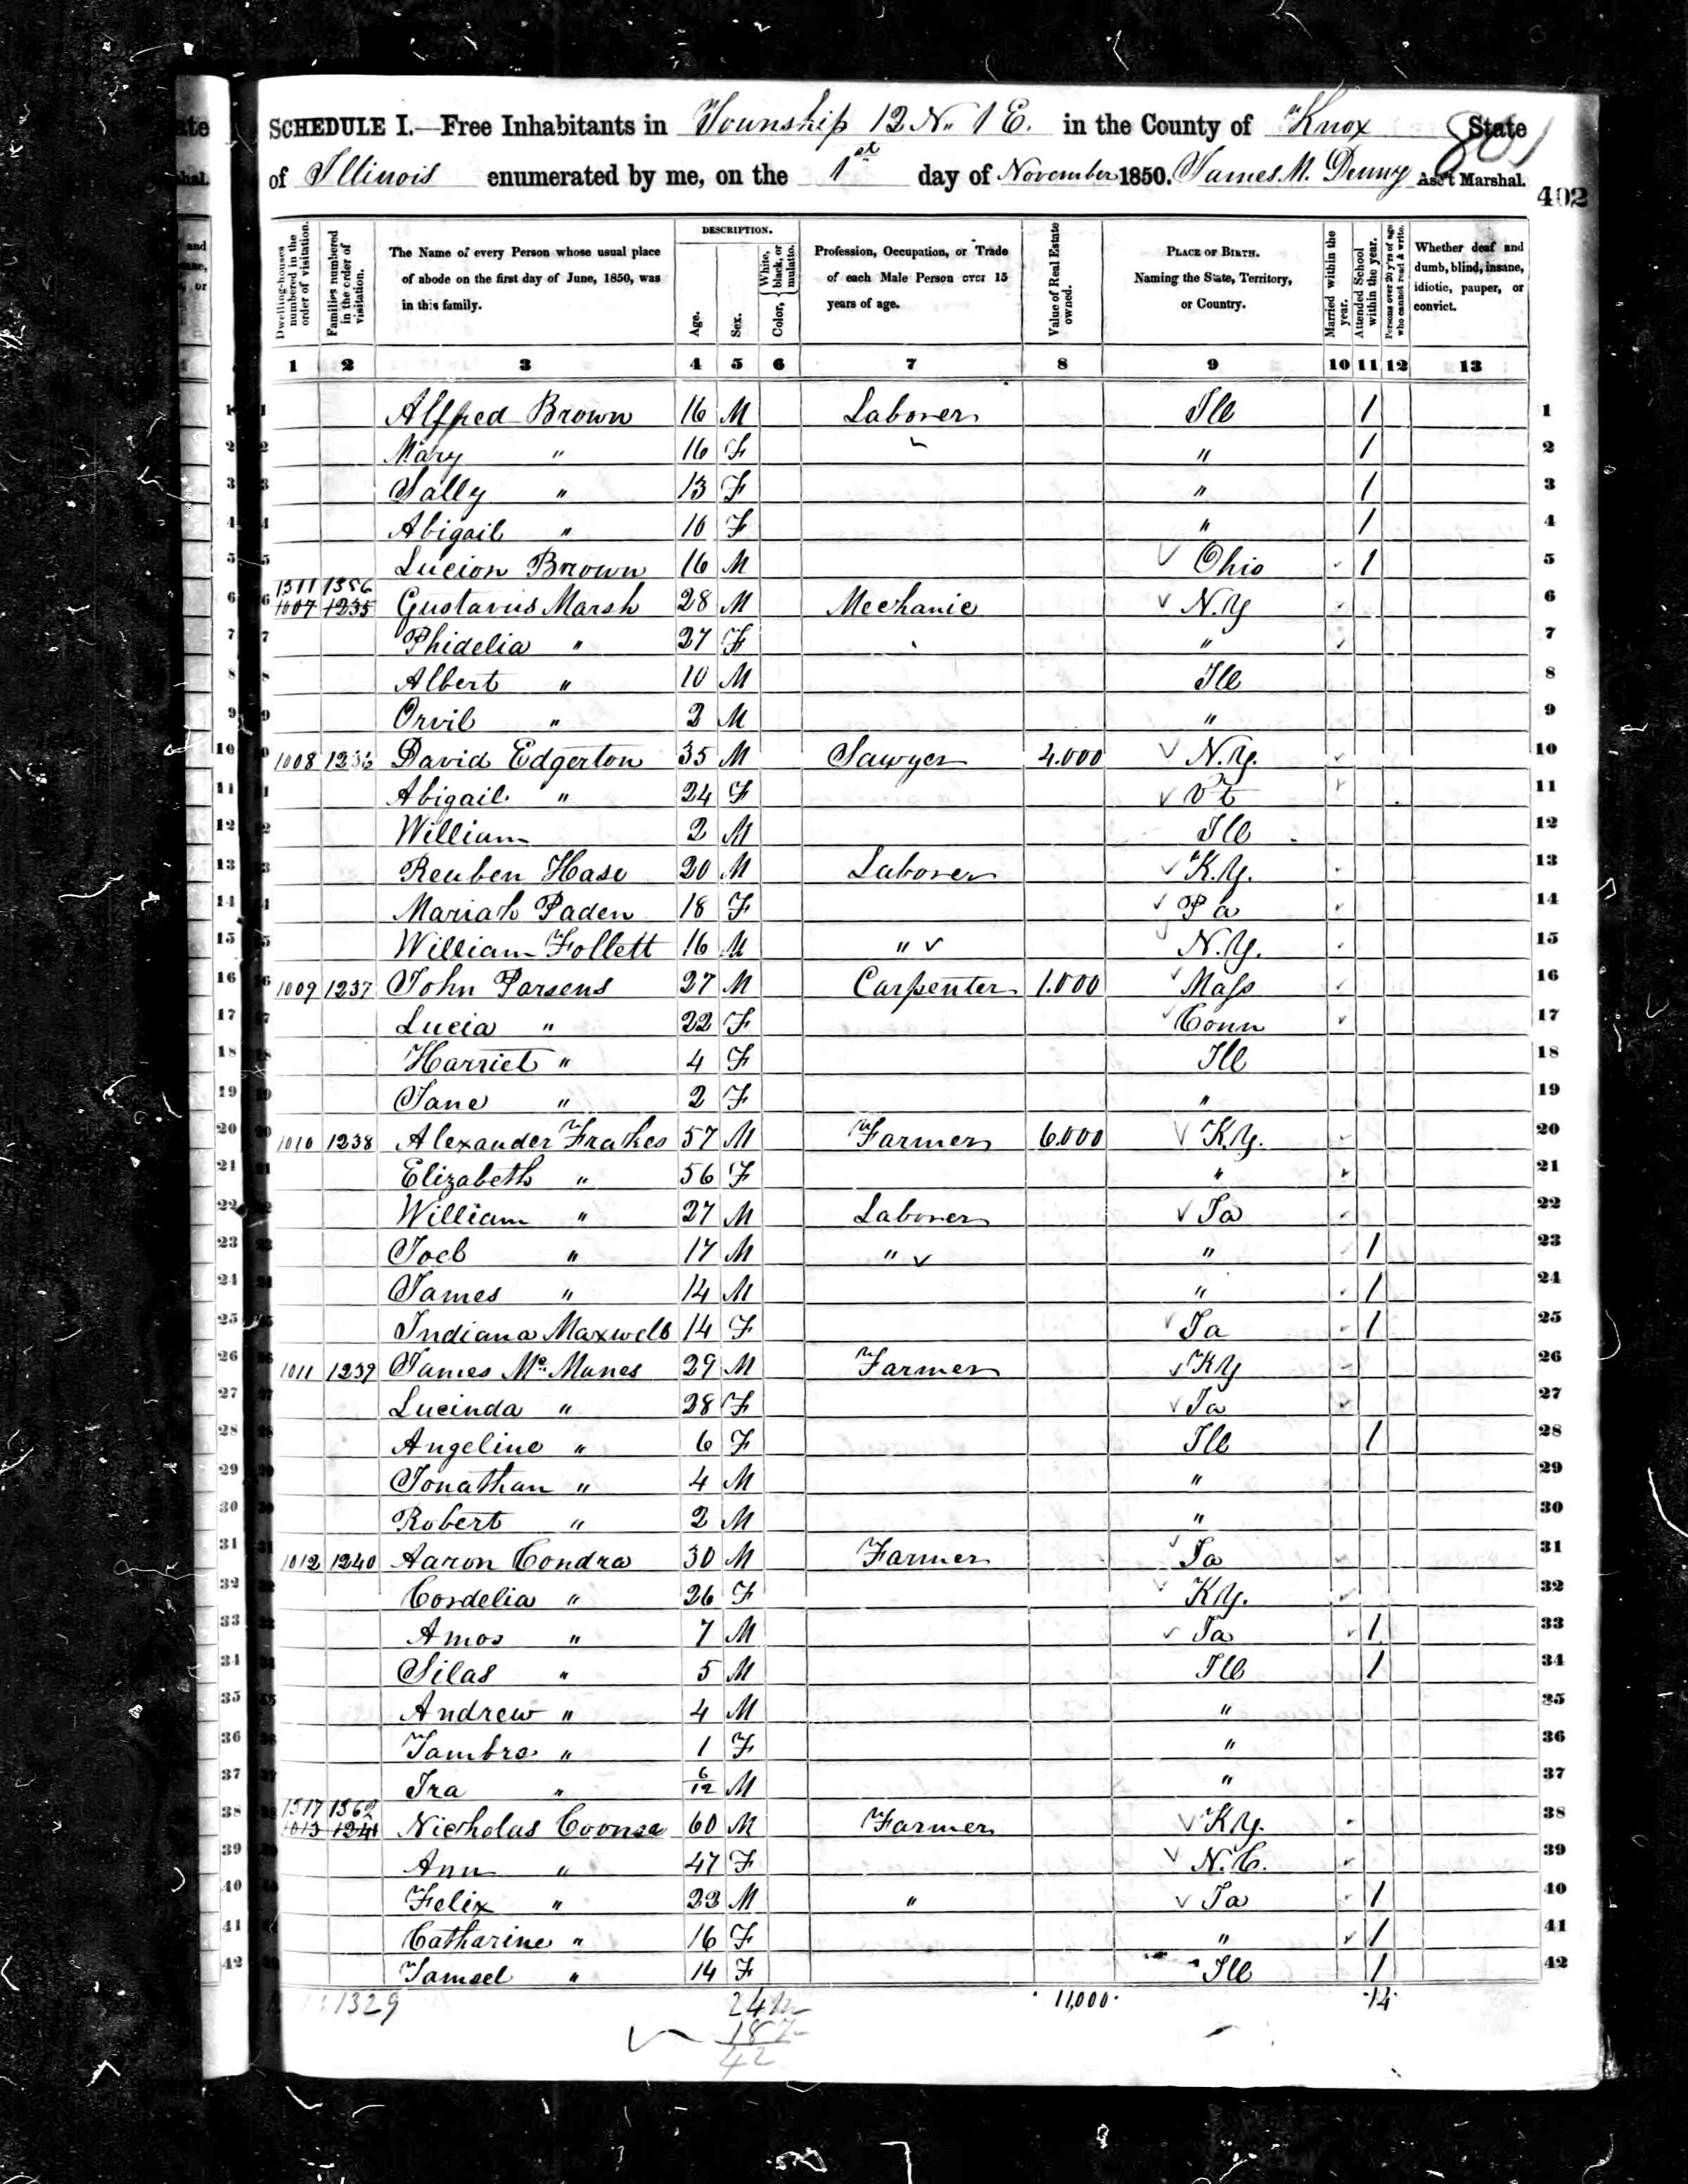 801
SCHEDULE I.—Free Inhabitants in Township 12 N. 1 E. in the County of Knox State
of Illinois enumerated by me, on the 1st day of November 1850. James M. Denny Ass't Marshal.
402
Dwelling-houses numbered in the order of visitation.
Families numbered in the order of visitation.
The Name of every Person whose usual place of abode on the first day of June, 1850, was in this family.
DESCRIPTION.
Age.
Sex.
Color, { White, black, or mulatto.
Profession, Occupation, or Trade of each Male Person over 15 years of age.
Value of Real Estate owned.
PLACE OF BIRTH. Naming the State, Territory, or Country.
Married within the year.
Attended School within the year.
Persons over 20 y'rs of age who cannot read & write.
Whether deaf and dumb, blind, insane, idiotic, pauper, or convict.
1 2 3 4 5 6 7 8 9 10 11 12 13
1 Alfred Brown 16 M Laborer Ill 1 1
2 Mary " 16 F " 1 2
3 Sally " 13 F " 1 3
4 Abigail " 10 F " 1 4
5 Lucion Brown 16 M Ohio 1 5
1311 1356
6 1007 1235 Gustavus Marsh 28 M Mechanic N.Y 6
7 Phidelia " 27 F " 7
8 Albert " 10 M Ill 8
9 Orvil " 2 M " 9
10 1008 1236 David Edgerton 35 M Sawyer 4.000 N.Y. 10
11 Abigail " 24 F Vt 11
12 William 2 M Ill 12
13 Reuben Hase 20 M Laborer K.Y. 13
14 Mariah Paden 18 F Pa 14
15 William Follett 16 M " N.Y. 15
16 1009 1237 John Parsens 27 M Carpenter 1.000 Mass 16
17 Lucia " 22 F Conn 17
18 Harriet " 4 F Ill 18
19 Jane " 2 F " 19
20 1010 1238 Alexander Frakes 57 M Farmer 6.000 K.Y. 20
21 Elizabeth " 56 F " 21
22 William " 27 M Laborer Ia 22
23 Joel " 17 M " " 1 23
24 James " 14 M " 1 24
25 Indiana Maxwell 14 F Ia 1 25
26 1011 1239 James Mc. Manes 29 M Farmer KY 26
27 Lucinda " 28 F Ia 27
28 Angeline " 6 F Ill 1 28
29 Jonathan " 4 M " 29
30 Robert " 2 M " 30
31 1012 1240 Aaron Condra 30 M Farmer Ia 31
32 Cordelia " 26 F KY. 32
33 Amos " 7 M Ia 1 33
34 Silas " 5 M Ill 1 34
35 Andrew " 4 M " 35
36 Tambra " 1 F " 36
37 Ira " 6/12 M " 37
1317 1362
38 1013 1241 Nicholas Coonse 60 M Farmer KY. 38
39 Ann " 47 F N.C. 39
40 Felix " 22 M " Ia 1 40
41 Catharine " 16 F " 1 41
42 Tamsel " 14 F Ill 1 42
1329 24 m 11,000. 14
18 f
42